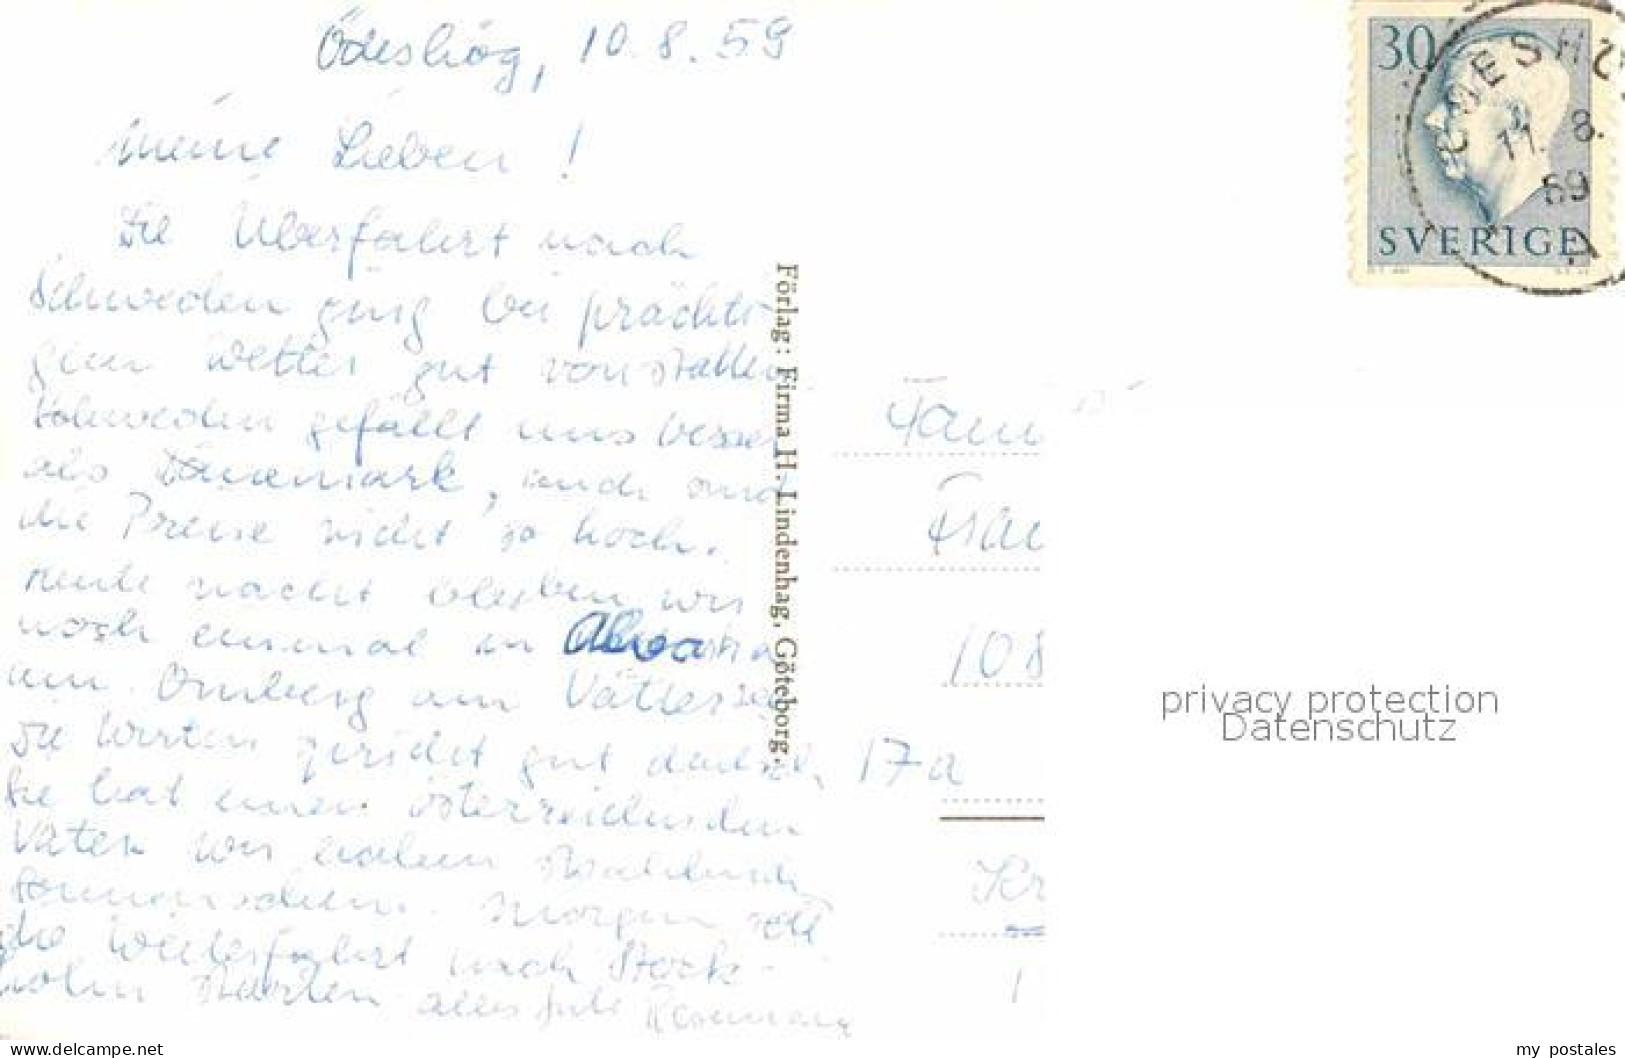 Ödeshög, 10.8.59
Meine Lieben!
Die Überfahrt nach
Schweden ging bei prächti-
gem Wetter gut vonstatten.
Schweden gefällt uns besser
als Dänemark, auch sind
die Preise nicht so hoch.
Heute nacht bleiben wir
noch einmal in Alvastra
am Omberg am Vättersee
Die Wirtin spricht gut deutsch,
sie hat einen österreichischen
Vater. Wir haben strahlenden
Sonnenschein. Morgen soll
die Weiterfahrt nach Stock-
holm starten alles Gute
Förlag: Firma H. Lindenhag, Göteborg.
30
SVERIGE
ÖDESHÖG
11. 8.
59
Fam
Frau
108
17a
Kr
privacy protection
Datenschutz
my_postales